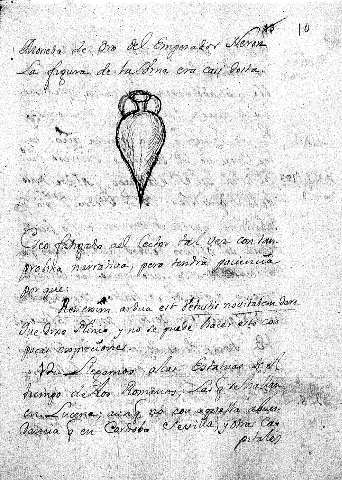 10
Moneda de Oro del Emperador Neron
La figura de la Urna era casi desta
Creo fatigado al Lector tal vez con tan
prolixa narrativa, pero tendra paciencia
porque
Res enim ardua est Vetustis novitatem dare
Que dixo Plinio, y no se puede hacer esto con
pocas expresiones
Llegamos a las Estatuas de el
tiempo de los Romanos, Las q se hallan
en Lucena, aunq no con aquella abun-
dancia q en Cordoba Sevilla, y otras Ca-
pitales